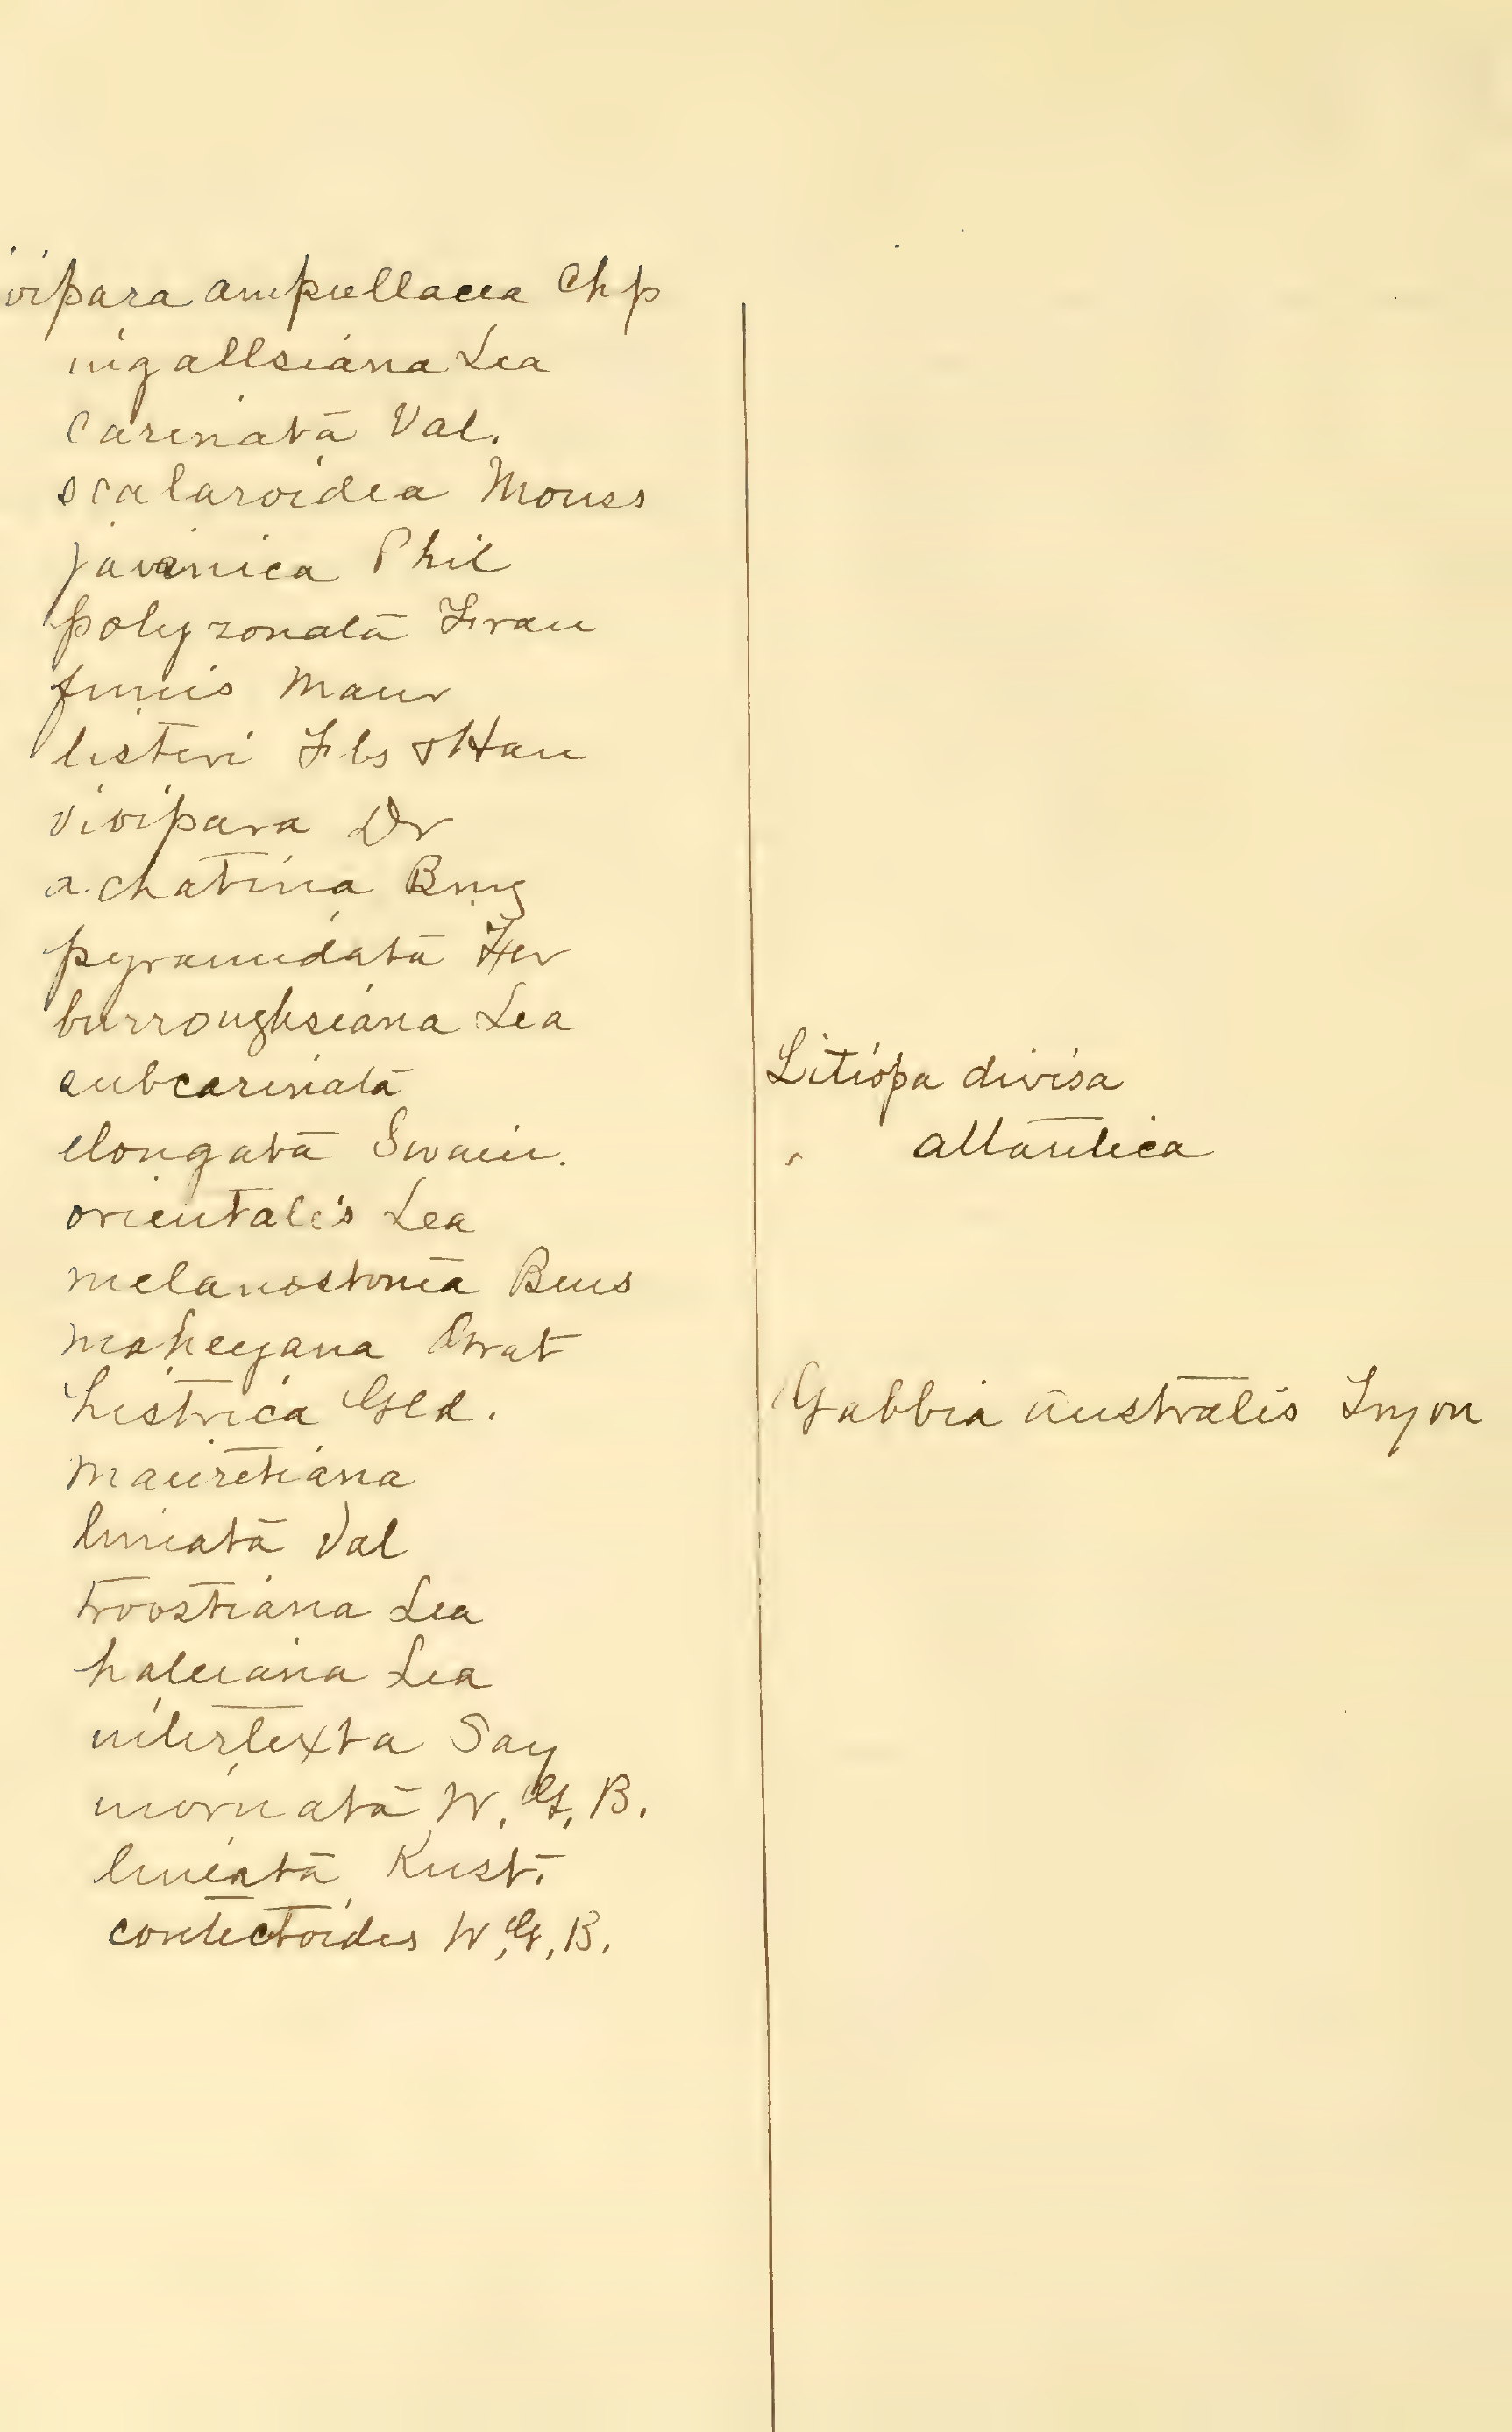 vipara ampullacea Chp
ingallsiana Lea
carinata Val.
scalaroidea Mouss
javanica Phil
polyzonata Frau
funis Maur
listeri Fbs & Han
vivipara Dr
achatina Brug
pyramidata Fer
burroughsiana Lea
subcarinata
elongata Swain.
orientalis Lea
melanostoma Bens
maheyana Grat
histrica Gld.
mauritiana
lineata Val
troostiana Lea
haleiana Lea
intertexta Say
inornata W. G. B.
lineata Kust.
contectoides W. G. B.
Litiopa divisa
atlantica
Gabbia australis Tryon